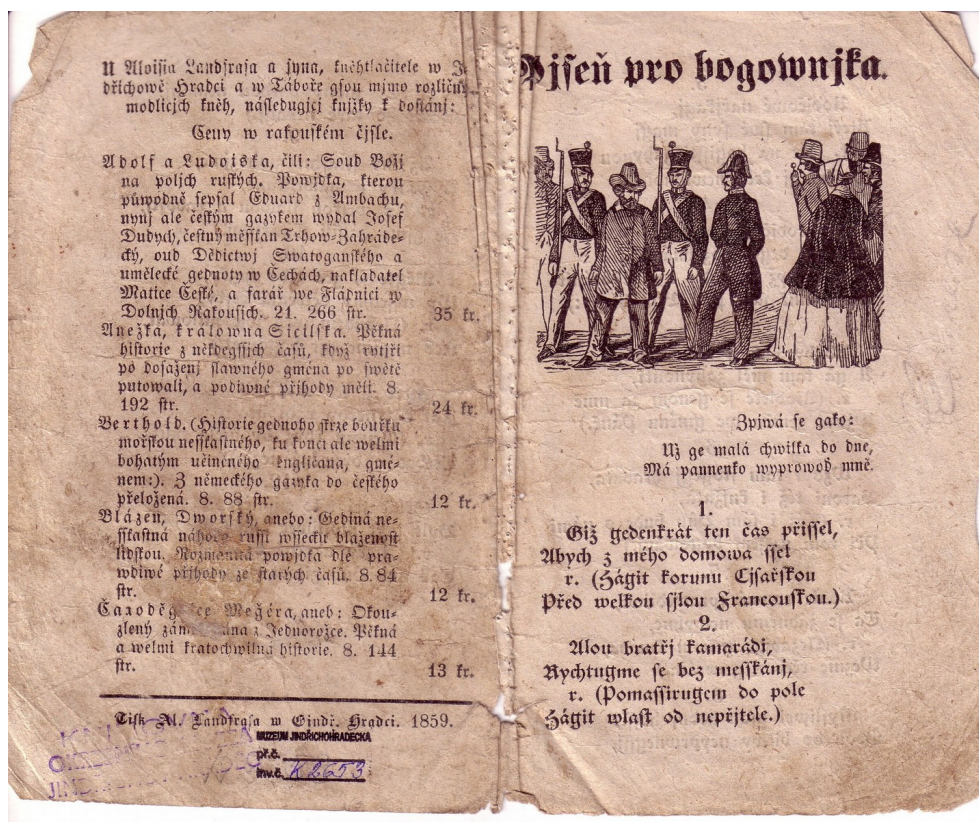 U Aloisia Landfrasa a syna, kněhtlačitele w
dřichowě Hradci a w Táboře gsou mimo rozličných
modlicjch kněh, následugjcj knjžky k dostánj:
Ceny w rakouském čjsle.
Adolf a Ludoiska, čili: Soud Božj
na poljch ruských. Powjdka, kterou
půwodně sepsal Eduard z Ambachu,
nynj ale českým gazykem wydal Josef
Dudych, čestný měssťan Trhow-Zahrádec-
ký, oud Dědictwj Swatoganského a
umělecké gednoty w Čechách, nakladatel
Matice České, a farář we Fládnici w
Dolnjch Rakousjch. 21. 266 str. 35 kr.
Anežka, králowna Sicilska. Pěkná
historie z někdegssjch časů, když rytjři
po dosaženj slawného gména po swětě
putowali, a podiwné přjhody měli. 8.
192 str. 24 kr.
Berthold. (Historie gednoho skrze bouřku
mořskou nessťastného, ku konci ale welmi
bohatým učiněného Engličana, gmé-
nem:). Z německého gazyka do českého
přeložená. 8. 88 str. 12 kr.
Blázen, Dworský, anebo: Gediná ne-
ssťastná náhoda russj wssecku blaženost
lidskou. Rozmanná powjdka dle pra-
wdiwé přjhody ze starých časů. 8. 84
str. 12 kr.
Megéra, aneb: Okou-
zlený z Jednorožce. Pěkná
a welmi kratochwilná historie. 8. 144
str. 13 kr.
Tisk Al. Landfrasa w Gindř. Hradci. 1859.
MUZEUM JINDŘICHOHRADECKA
př.č.
inv.č. K 2653
Pjseň pro bogownjka.
Zpjwá se gako:
Už ge malá chwilka do dne,
Má pannenko wyprowoď mně.
1.
Giž gedenkrát ten čas přissel,
Abych z mého domowa ssel
r. (Hágit korunu Cjsařskou
Před welkou sjlou Francouskou.)
2.
Alou bratřj kamarádi,
Rychtugme se bez messkánj,
r. (Pomassirugem do pole
Hágit wlast od nepřjtele.)